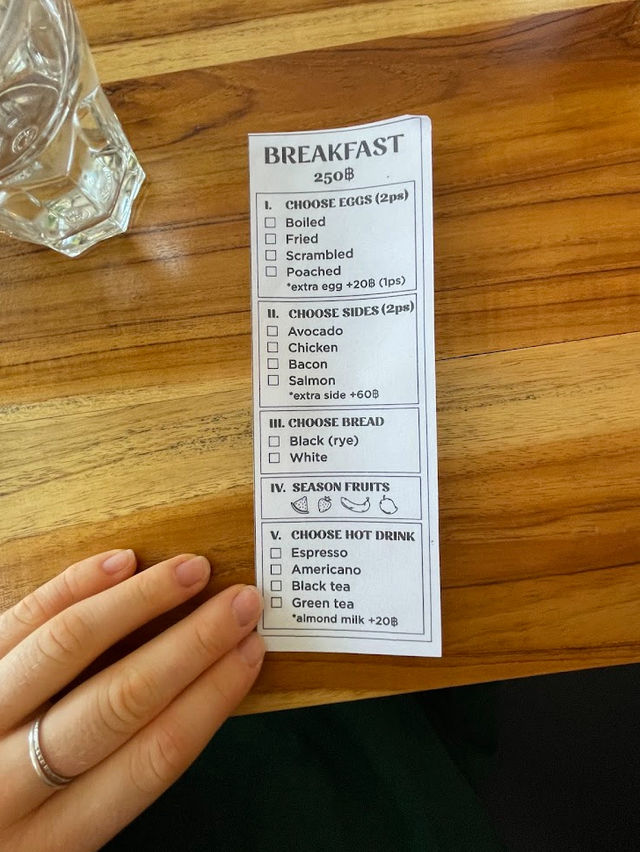 BREAKFAST
250฿
I. CHOOSE EGGS (2ps)
Boiled
Fried
Scrambled
Poached
*extra egg +20฿ (1ps)
II. CHOOSE SIDES (2ps)
Avocado
Chicken
Bacon
Salmon
*extra side +60฿
III. CHOOSE BREAD
Black (rye)
White
IV. SEASON FRUITS
V. CHOOSE HOT DRINK
Espresso
Americano
Black tea
Green tea
*almond milk +20฿